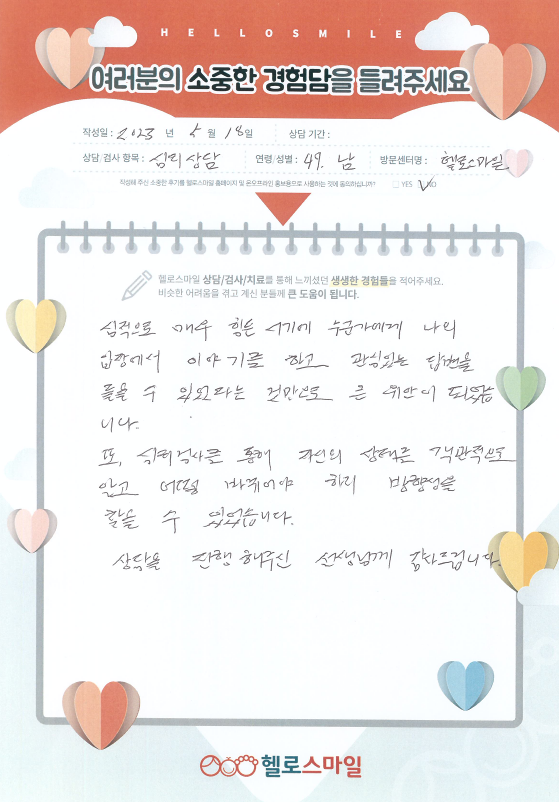 HELLOSMILE
여러분의 소중한 경험담을 들려주세요
작성일 : 2023 년 5 월 18일 상담 기간 :
상담/검사 항목 : 심리상담 연령/성별 : 49. 남 방문센터명 : 헬로스마일
작성해 주신 소중한 후기를 헬로스마일 홈페이지 및 온오프라인 홍보용으로 사용하는 것에 동의하십니까? YES NO
헬로스마일 상담/검사/치료를 통해 느끼셨던 생생한 경험들을 적어주세요.
비슷한 어려움을 겪고 계신 분들께 큰 도움이 됩니다.
심적으로 매우 힘든 시기에 누군가에게 나의
입장에서 이야기를 하고 관심있는 답변을
들을 수 있었다는 것만으로 큰 위안이 되었습
니다.
또, 심리검사를 통해 자신의 상태를 객관적으로
알고 어떻게 바뀌어야 하는지 방향성을
찾을 수 있었습니다.
상담을 진행해주신 선생님께 감사드립니다.
헬로스마일